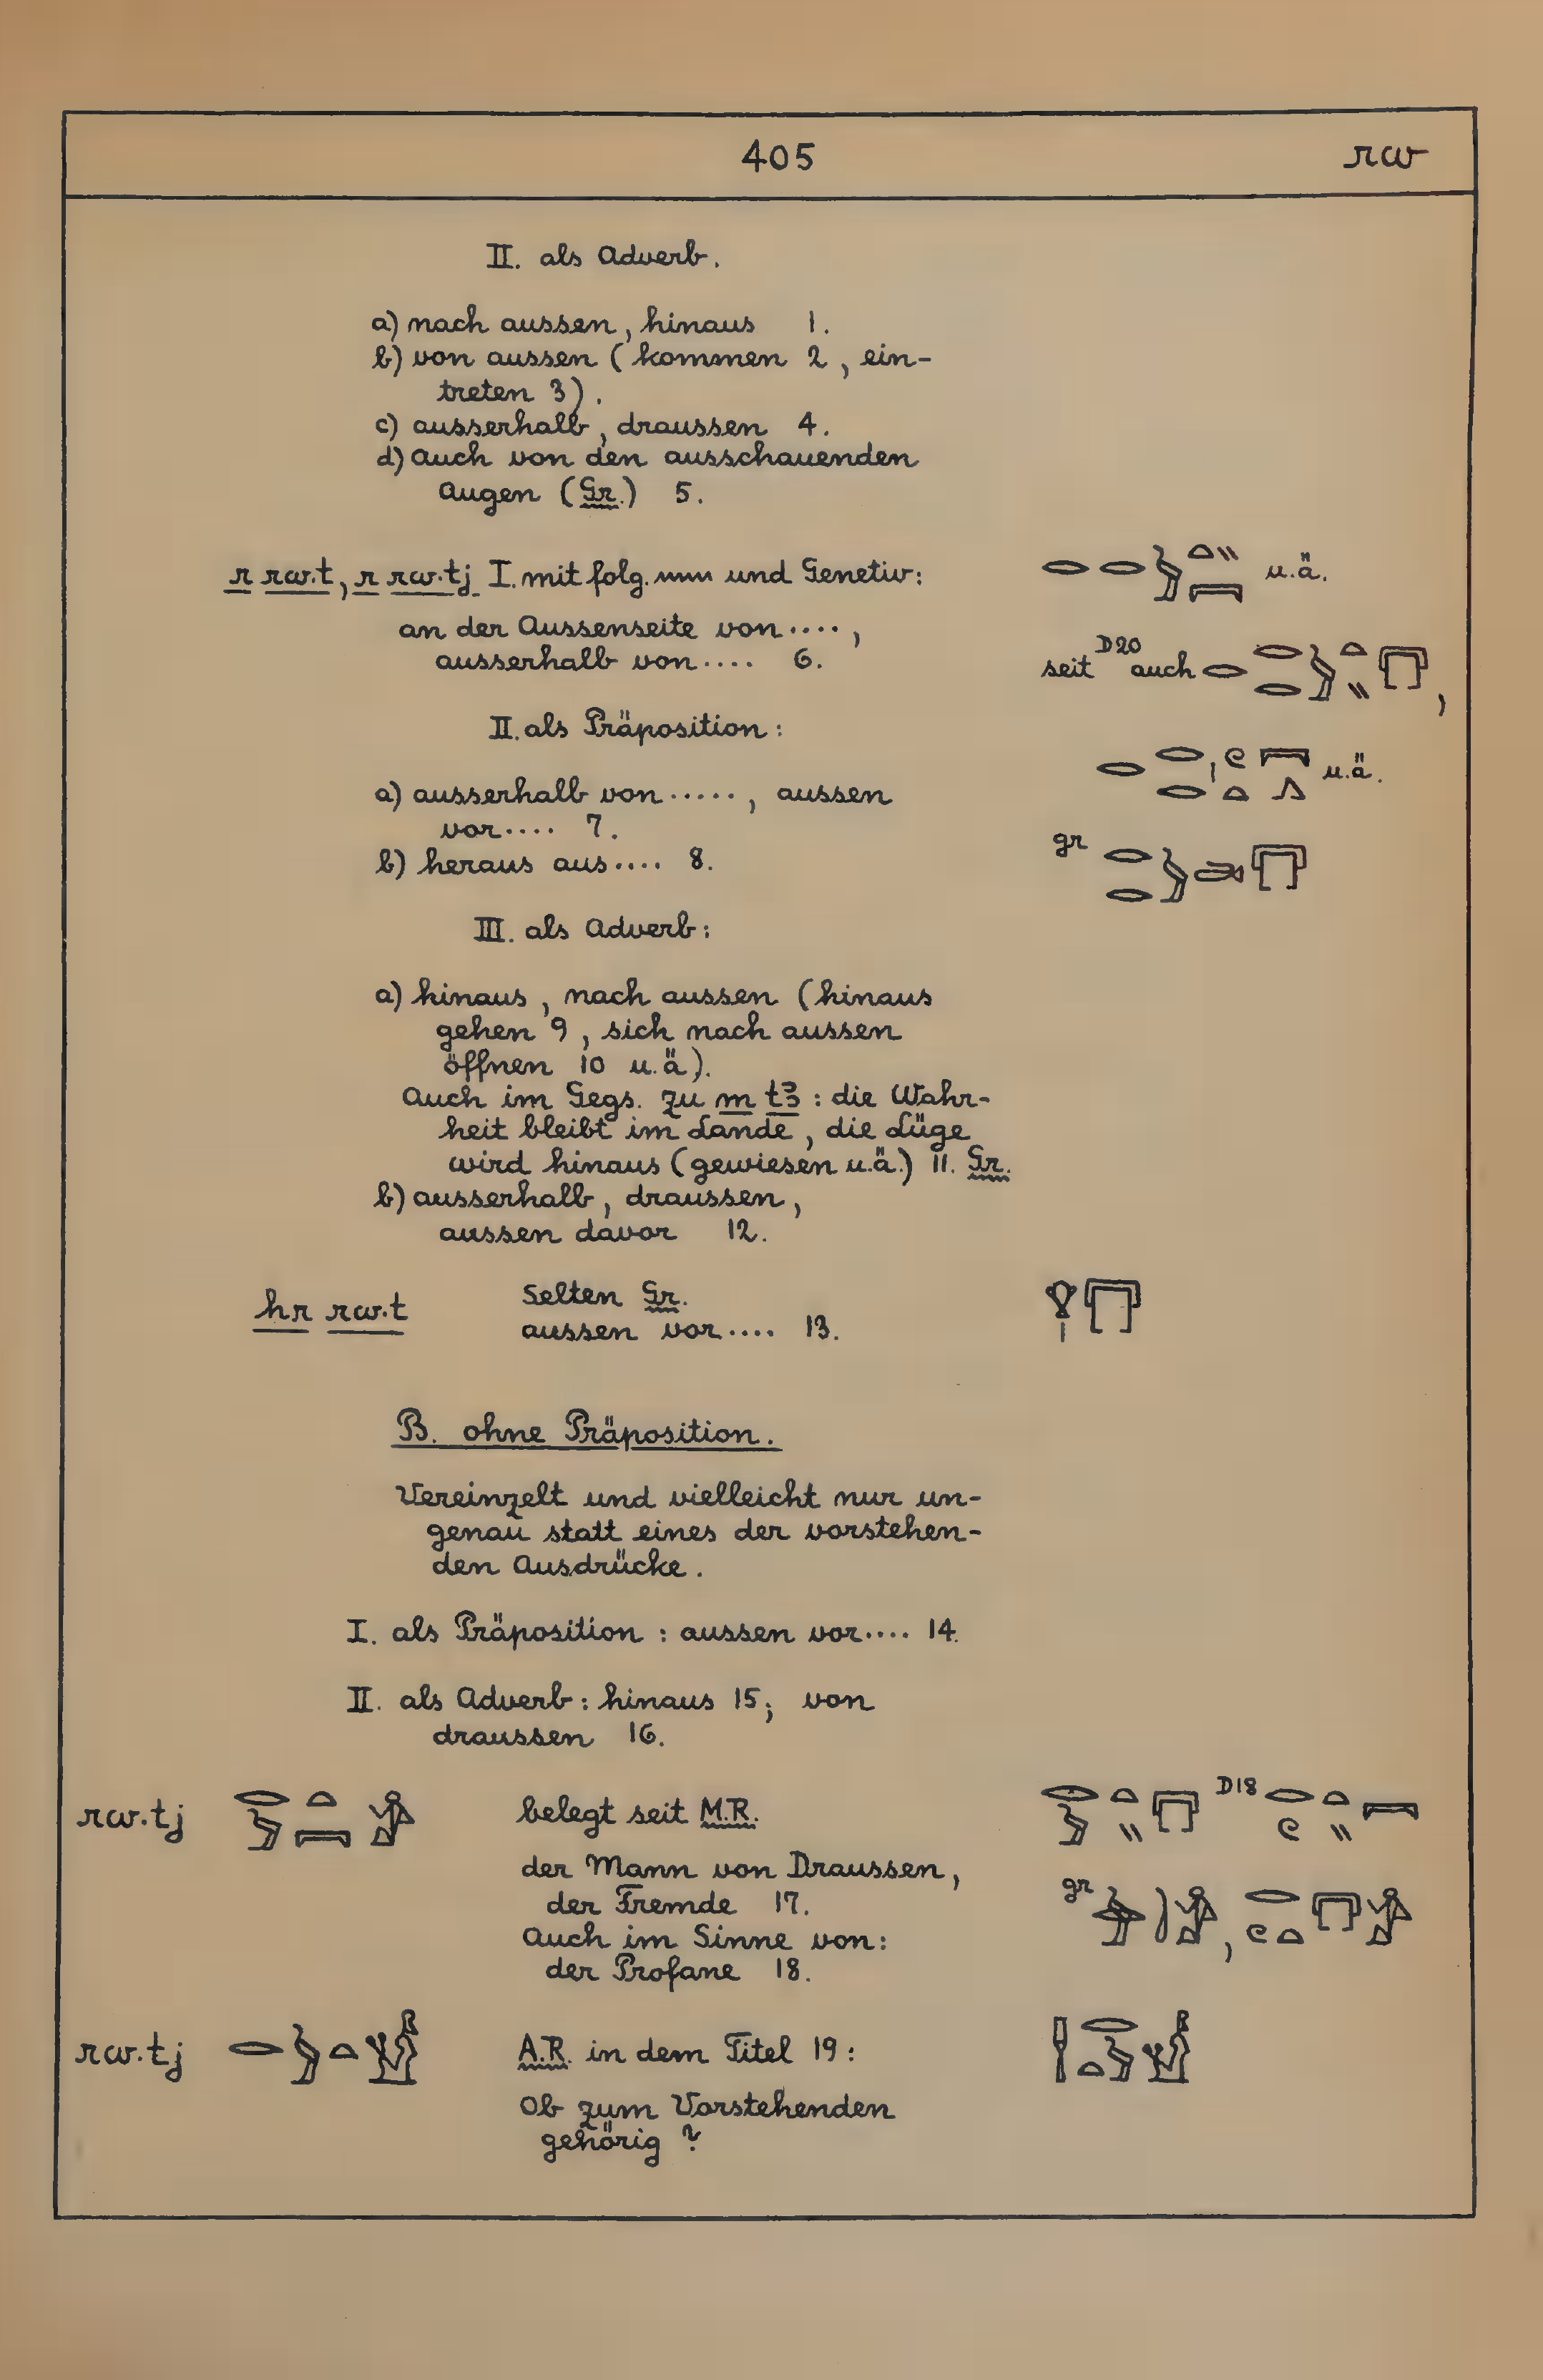 405 rw
II. als Adverb.
a) nach aussen, hinaus 1.
b) von aussen (kommen 2, ein-
treten 3).
c) ausserhalb, draussen 4.
d) Auch von den ausschauenden
Augen (Gr.) 5.
r rw.t, r rw.tj I. mit folg. 𓈖 und Genetiv: 𓂋𓂋𓃀𓏏𓏭𓇯 u.ä.
an der Aussenseite von ....,
ausserhalb von .... 6.
seit D20 auch
II. als Präposition:
u.ä.
a) ausserhalb von ....., aussen
vor .... 7.
gr
b) heraus aus .... 8.
III. als Adverb:
a) hinaus, nach aussen (hinaus
gehen 9, sich nach aussen
öffnen 10 u.ä.).
Auch im Gegs. zu m tꜣ : die Wahr-
heit bleibt im Lande, die Lüge
wird hinaus (gewiesen u.ä.) 11. Gr.
b) ausserhalb, draussen,
aussen davor 12.
hr rw.t selten Gr.
aussen vor .... 13.
B. ohne Präposition.
Vereinzelt und vielleicht nur un-
genau statt eines der vorstehen-
den Ausdrücke.
I. als Präposition : aussen vor .... 14.
II. als Adverb : hinaus 15; von
draussen 16.
rw.tj belegt seit M.R. D18
der Mann von Draussen,
der Fremde 17. gr
Auch im Sinne von:
der Profane 18.
rw.tj A.R. in dem Titel 19:
Ob zum Vorstehenden
gehörig ?